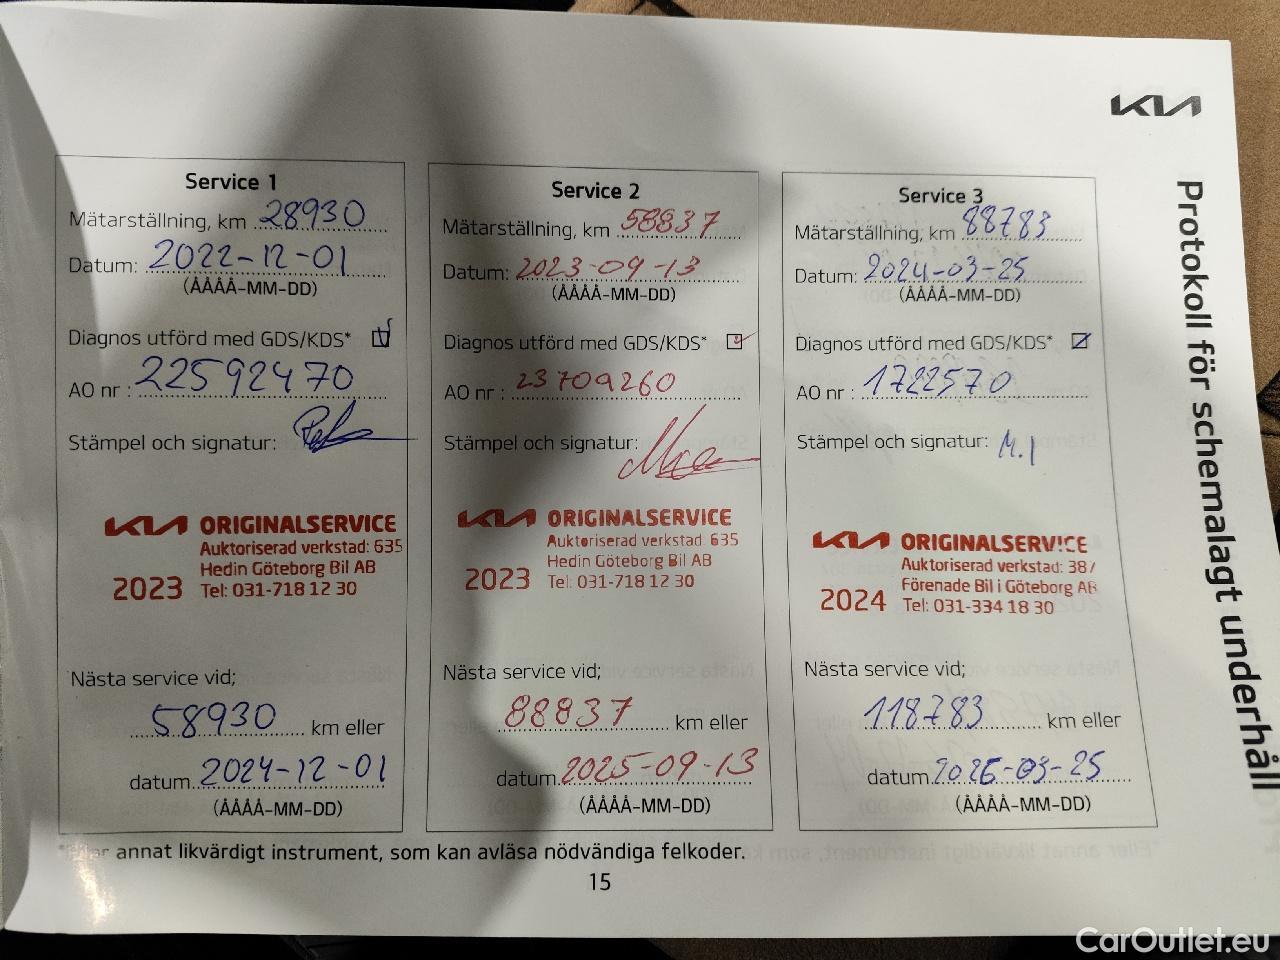 KIA
Protokoll för schemalagt underhåll
Service 1
Mätarställning, km 28930
Datum: 2022-12-01
(ÅÅÅÅ-MM-DD)
Diagnos utförd med GDS/KDS*
AO nr : 22592470
Stämpel och signatur:
KIA ORIGINALSERVICE
Auktoriserad verkstad: 635
Hedin Göteborg Bil AB
2023 Tel: 031-718 12 30
Nästa service vid;
58930 km eller
datum 2024-12-01
(ÅÅÅÅ-MM-DD)
Service 2
Mätarställning, km 58837
Datum: 2023-09-13
(ÅÅÅÅ-MM-DD)
Diagnos utförd med GDS/KDS*
AO nr : 23709260
Stämpel och signatur:
KIA ORIGINALSERVICE
Auktoriserad verkstad: 635
Hedin Göteborg Bil AB
2023 Tel: 031-718 12 30
Nästa service vid;
88837 km eller
datum 2025-09-13
(ÅÅÅÅ-MM-DD)
Service 3
Mätarställning, km 88783
Datum: 2024-03-25
(ÅÅÅÅ-MM-DD)
Diagnos utförd med GDS/KDS*
AO nr : 1722570
Stämpel och signatur: M.I
KIA ORIGINALSERVICE
Auktoriserad verkstad:
Förenade Bil i Göteborg AB
2024 Tel: 031-334 18 30
Nästa service vid;
118783 km eller
datum 2026-03-25
(ÅÅÅÅ-MM-DD)
annat likvärdigt instrument, som kan avläsa nödvändiga felkoder.
15
CarOutlet.eu